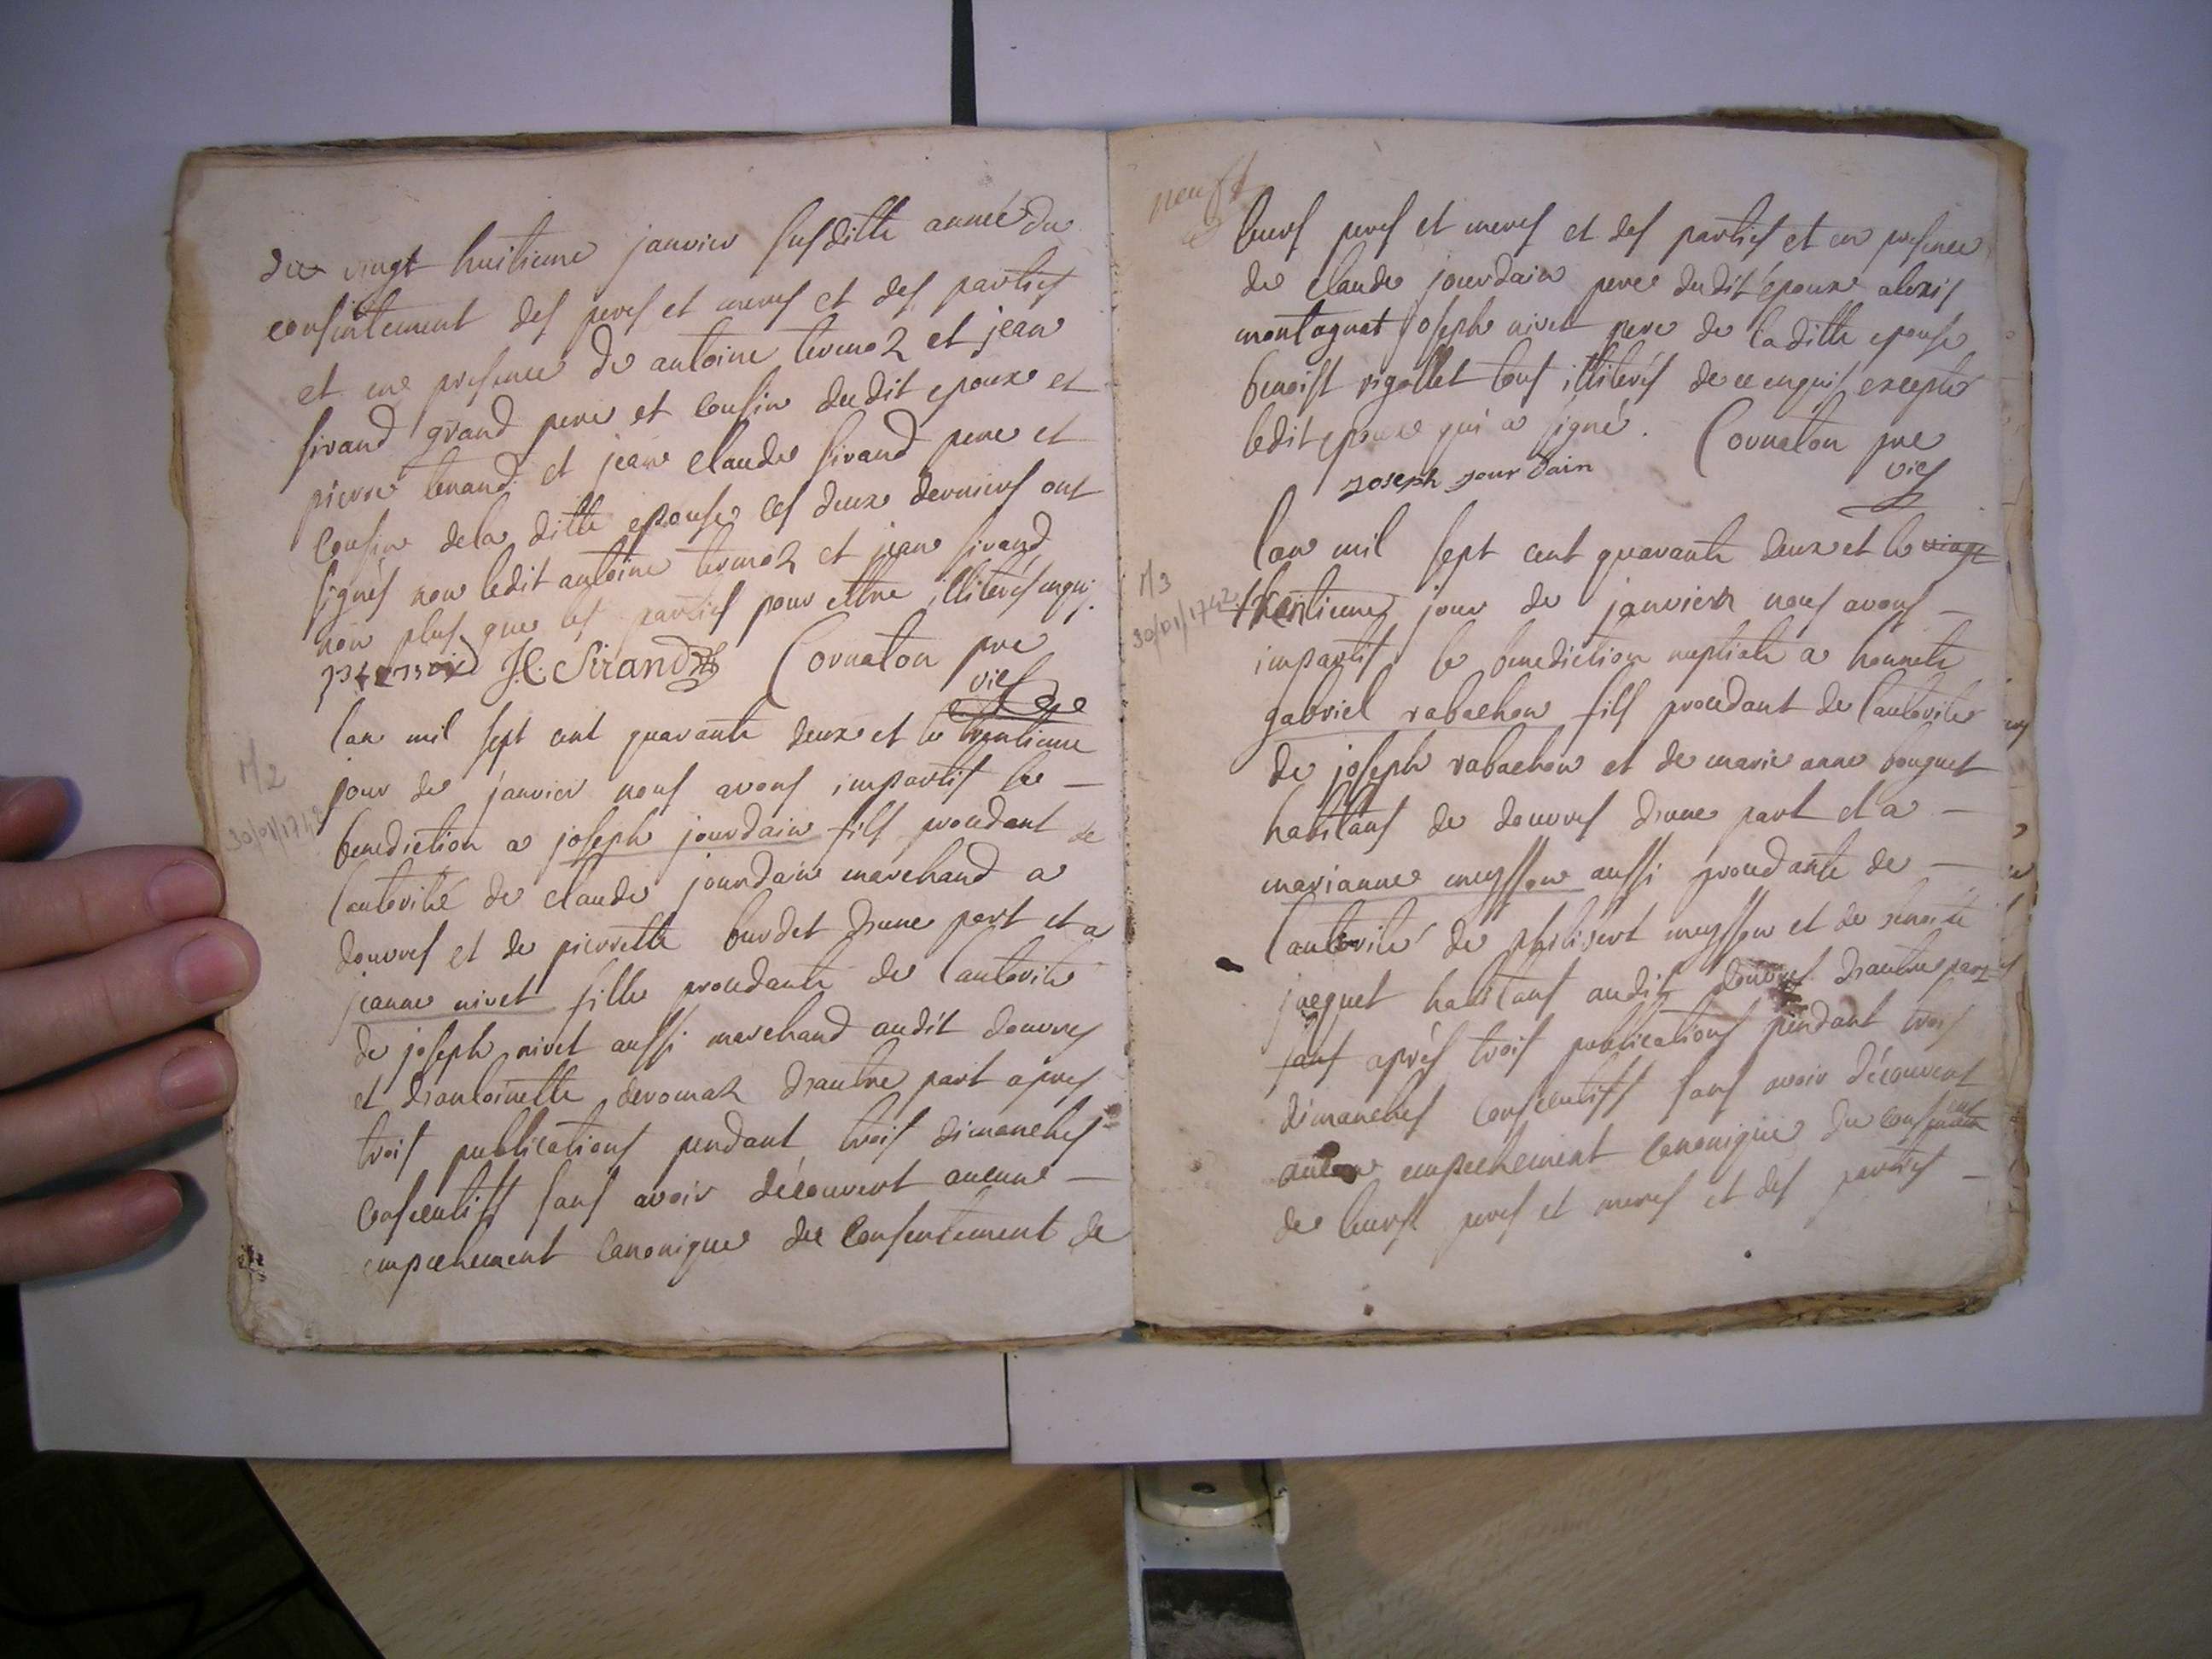 du vingt huitieme janvier susditte année du
consintement des peres et meres et des parties
et en presence de antoine termoz et jean
sirand grand pere et cousin dudit epoux et
pierre tenand et jean claude sirand pere et
cousin dela ditte epouse les deux derniers ont
signés non ledit antoine termoz et jean sirand
non plus que les parties pour ettre illiterés enquis
J C Sirand Cornaton pre
vic
lan mil sept cent quarante deux et le trentieme
M2
30/01/1742
jour de janvier nous avons impartis la —
benediction a joseph jourdain fils procedant de
lautorité de claude jourdain marchand a
douvres et de pierrette burdet d'une part et a
jeanne nivet fille procedante de lautorité
de joseph nivet aussi marchand audit douvres
et d'antoinette deromaz d'autre part apres
trois publications pendant trois dimanches
consecutifs sans avoir découvert aucune —
empechement canonique du consentement de
neuf
leurs peres et meres et des parties et en presence
de claude jourdain pere dudit epoux alexis
montagnat joseph nivet pere de laditte epouse
benoist rigollet tous illiterés de ce enquis excepté
ledit epoux qui a signé. Cornaton pre
vic
joseph jourdain
lan mil sept cent quarante deux et le vingt
M3
30/01/1742
trentieme jour de janvier nous avons —
impartis la benediction nuptiale a honnete
gabriel rabachon fils procedant de lautorité
de joseph rabachon et de marie anne bouguet
habitans de douvres d'une part et a —
marianne meysson aussi procedante de —
lautorité de philibert meysson et de benoite
juquet habitans audit douvres d'autre part
sans aprés trois publications pendant trois
dimanches consecutifs sans avoir découvert
aucune empechement canonique du consentement
de leurs peres et meres et des parties —